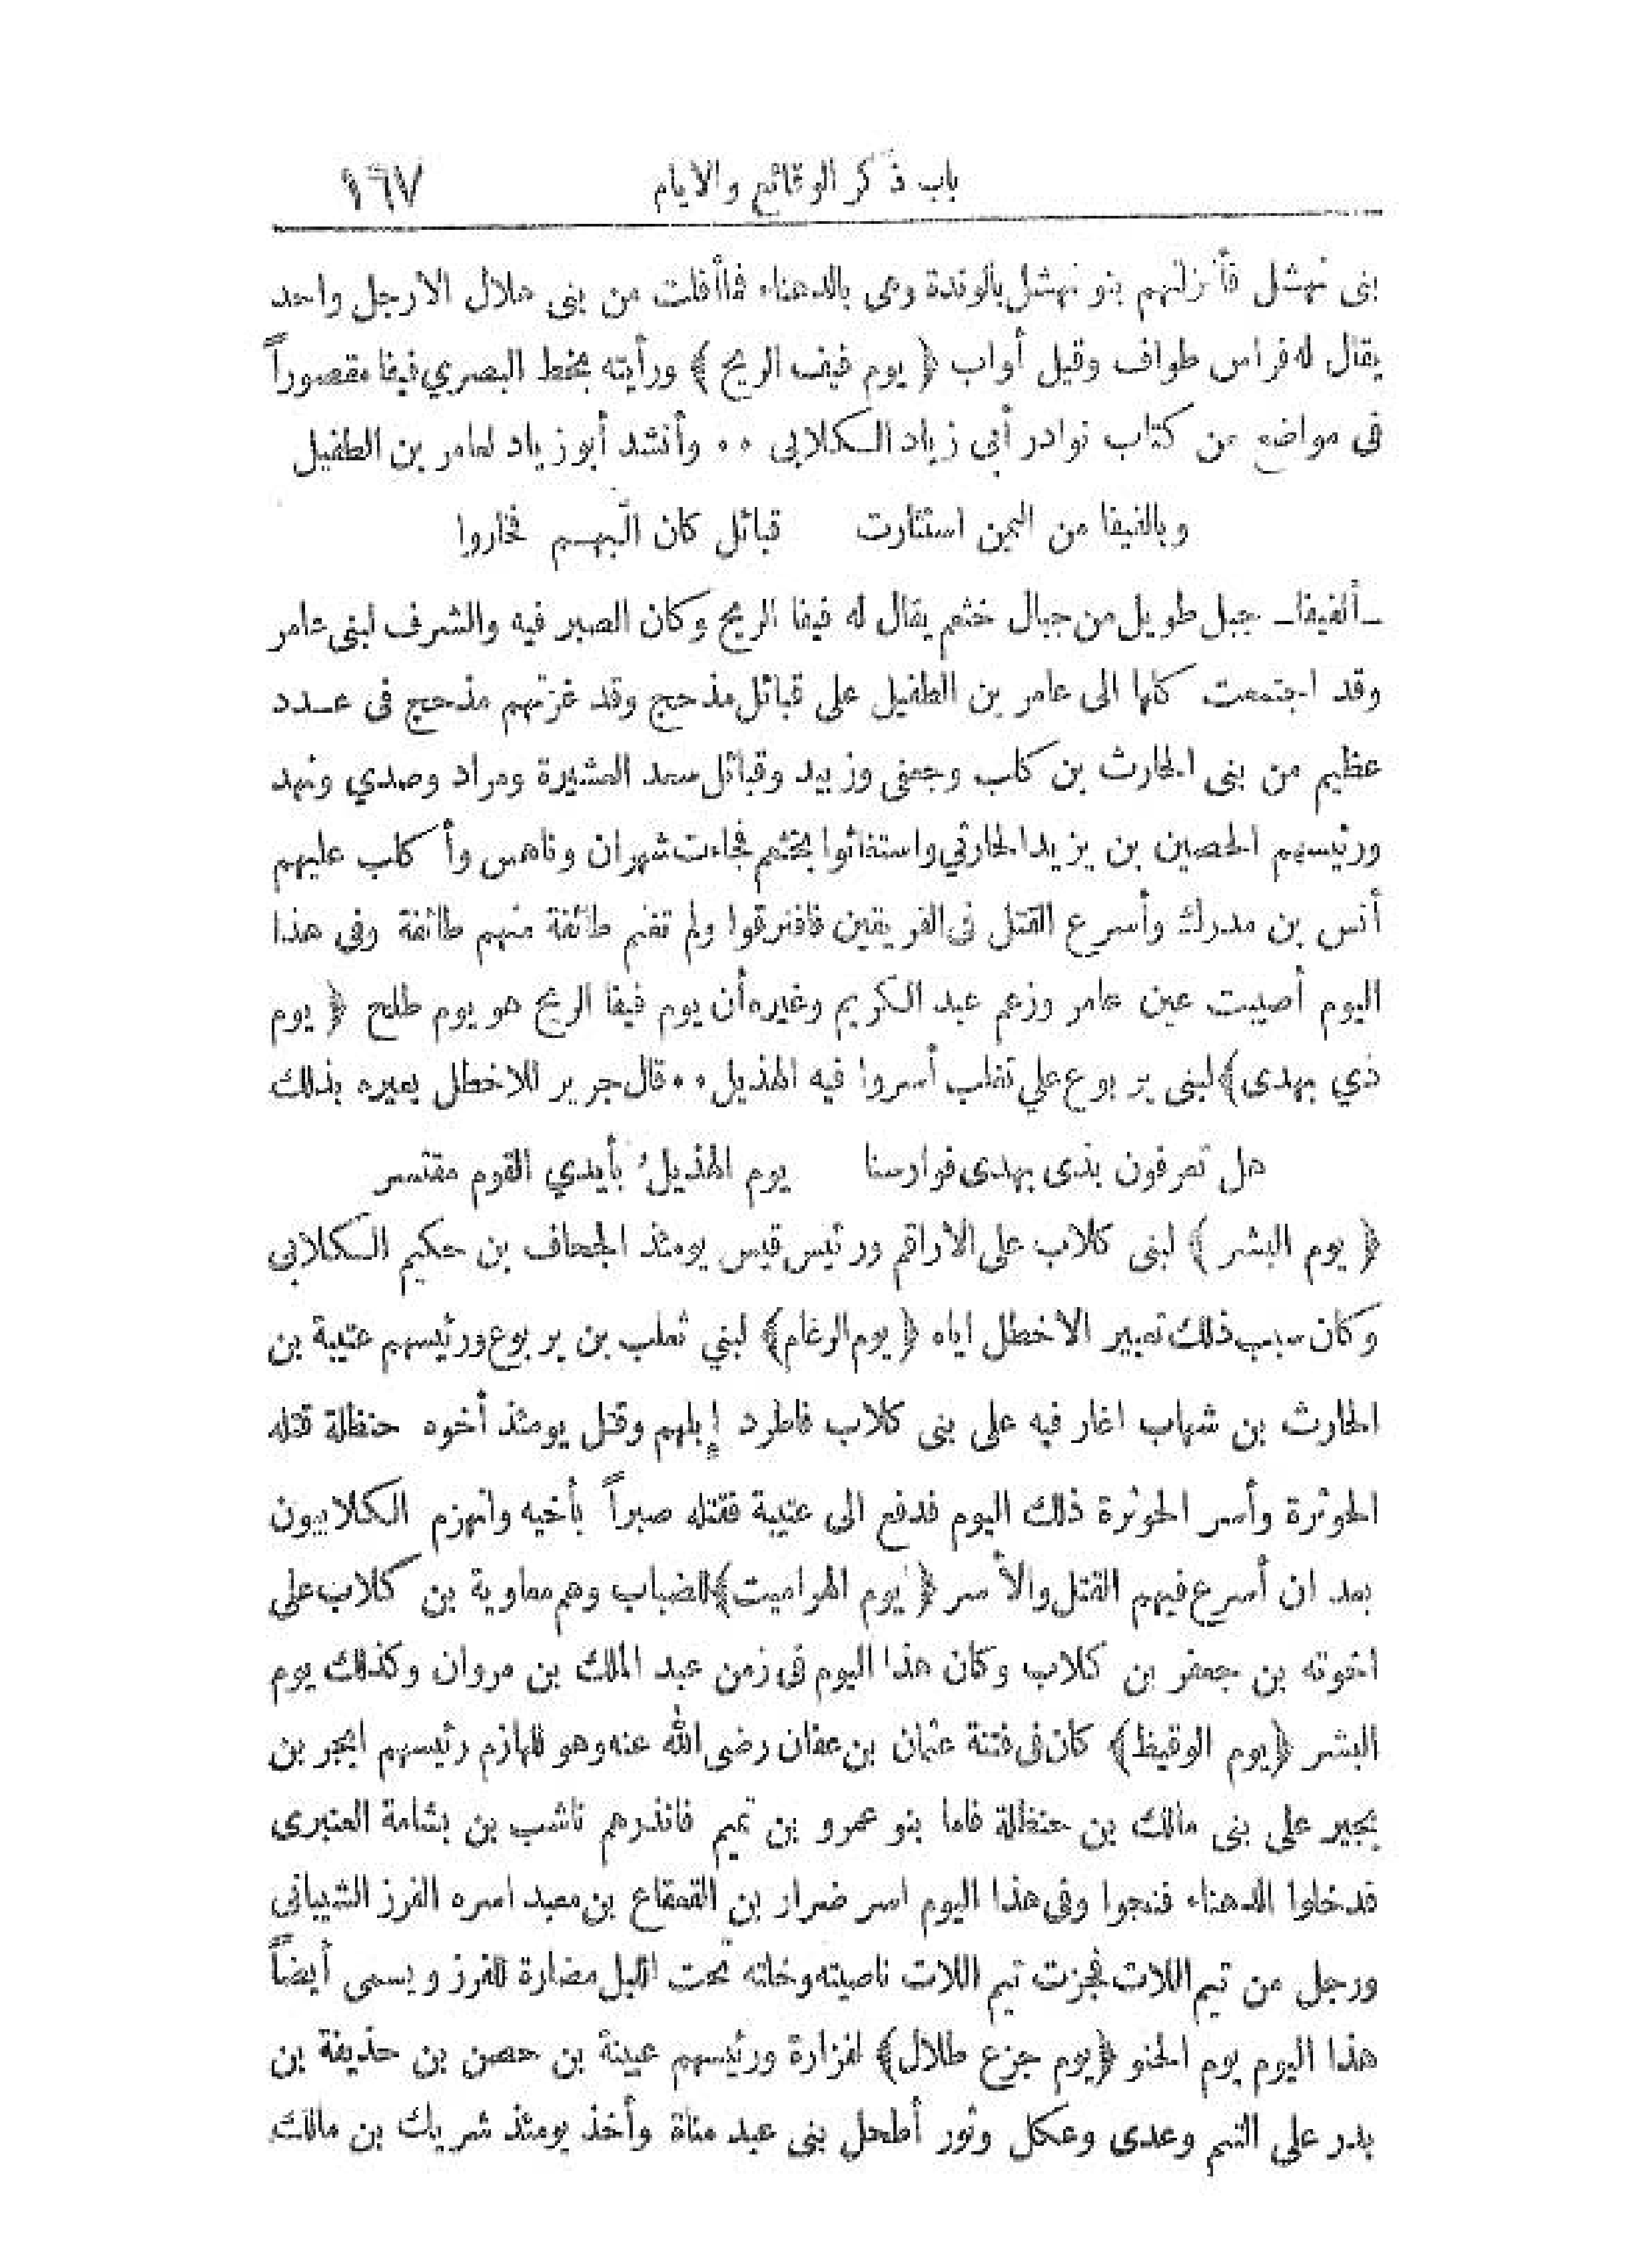 باب ذكر الوقائع والايام ١٦٧
بنى نهشل فأنزلتهم بنو نهشل بالوتدة وهى بالدهناء فماأفلت من بنى هلال الا رجل واحد
يقال له فراس طواف وقيل أواب ﴿ يوم فيف الريح ﴾ ورأيته بخط البصري فيفا مقصوراً
فى مواضع من كتاب نوادر أبى زياد الكلابى ٠٠ وأنشد أبو زياد لعامر بن الطفيل
وبالفيفا من اليمن استثارت قبائل كان البهم فخاروا
ــ ألفيفا ــ جبل طويل من جبال خثعم يقال له فيفا الريح وكان الصبر فيه والشرف لبنى عامر
وقد اجتمعت كلها الى عامر بن الطفيل على قبائل مذحج وقد غزتهم مذحج فى عدد
عظيم من بنى الحارث بن كعب وجعفى وزبيد وقبائل سعد العشيرة ومراد وصدي ونهد
ورئيسهم الحصين بن يزيد الحارثي واستغاثوا بخثعم فجاءت شهران وناهس وأكلب عليهم
أنس بن مدرك وأسرع القتل فى الفريقين فافترقوا ولم تغنم طائفة منهم طائفة وفى هذا
اليوم أصيبت عين عامر وزعم عبد الكريم وغيره أن يوم فيفا الريح هو يوم طلح ﴿ يوم
ذي بهدى ﴾ لبنى يربوع علي تغلب أسروا فيه الهذيل ٠٠ قال جرير للاخطل يعيره بذلك
هل تعرفون بذى بهدى فوارسنا يوم الهذيلُ بأيدي القوم مقتسر
﴿ يوم البشر ﴾ لبنى كلاب على الأراقم ورئيس قيس يومئذ الجحاف بن حكيم الكلابى
وكان سبب ذلك تعيير الاخطل اياه ﴿ يوم الرغام ﴾ لبني ثعلب بن يربوع ورئيسهم عتيبة بن
الحارث بن شهاب اغار فيه على بنى كلاب فاطرد إبلهم وقتل يومئذ أخوه حنظلة قتله
الحوثرة وأسر الحوثرة ذلك اليوم فدفع الى عتيبة فقتله صبراً بأخيه وانهزم الكلابيون
بعد ان أسرع فيهم القتل والأسر ﴿ يوم الهراميت ﴾ للضباب وهم معاوية بن كلاب على
اخوته بن جعفر بن كلاب وكان هذا اليوم فى زمن عبد الملك بن مروان وكذلك يوم
البشر ﴿ يوم الوقيظ ﴾ كان فى فتنة عثمان بن عفان رضى الله عنه وهو للهازم رئيسهم ابجر بن
بجير على بنى مالك بن حنظلة فاما بنو عمرو بن تميم فانذرهم ناشب بن بشامة العنبرى
فدخلوا الدهناء فنجوا وفى هذا اليوم اسر ضرار بن القعقاع بن معبد اسره الفرز الشيبانى
ورجل من تيم اللات فجزت تيم اللات ناصيته وخلته تحت الليل مضارة للفرز ويسمى أيضاً
هذا اليوم يوم الحنو ﴿ يوم جزع طلال ﴾ لفزارة ورئيسهم عيينة بن حصن بن حذيفة بن
بدر على التيم وعدى وعكل وثور أطحل بنى عبد مناة وأخذ يومئذ شريك بن مالك